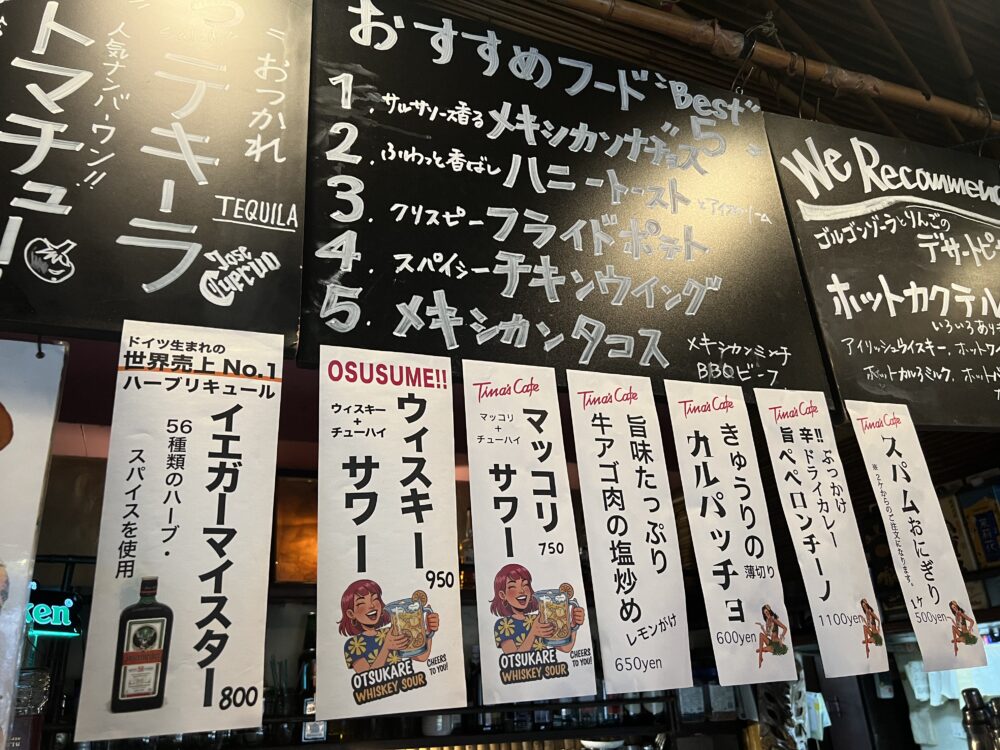 トマチュー!
人気ナンバーワン!!
テキーラ
"おつかれ
TEQUILA
Jose Cuervo
おすすめフード "Best 5"
1. サルサソース香る メキシカンナチョス
2. ふわっと香ばし ハニートースト とアイスクリーム
3. クリスピー フライドポテト
4. スパイシー チキンウイング
5. メキシカンタコス
メキシカンミンチ
BBQビーフ
We Recommen
ゴルゴンゾーラとりんごの
デザートピ
ホットカクテル
いろいろあり
アイリッシュウィスキー、ホットワ
ホットカルアミルク、ホットバ
ken
ドイツ生まれの
世界売上 No.1
ハーブリキュール
イエガーマイスター
56種類のハーブ・
スパイスを使用
800
OSUSUME!!
ウィスキー
+
チューハイ
ウィスキー
サワー
950
OTSUKARE
WHISKEY SOUR
CHEERS
TO YOU!
Tina's Cafe
マッコリ
+
チューハイ
マッコリ
サワー
750
OTSUKARE
WHISKEY SOUR
CHEERS
TO YOU!
Tina's Cafe
旨味たっぷり
牛アゴ肉の塩炒め
レモンがけ
650yen
Tina's Cafe
きゅうりの薄切り
カルパッチョ
600yen
Tina's Cafe
ぶっかけ
辛!!ドライカレー
旨ペペロンチーノ
1100yen
Tina's Cafe
スパムおにぎり
※2ケからのご注文になります。
1ケ
500yen